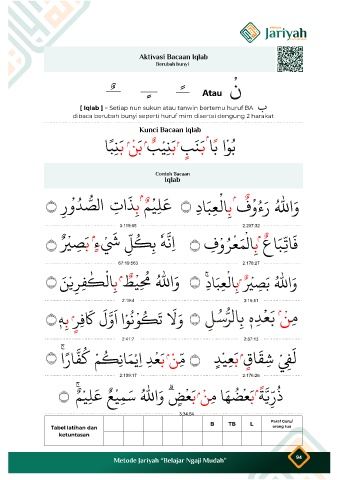 Jariyah
Aktivasi Bacaan Iqlab
Berubah bunyi
Atau نْ
[ Iqlab ] – Setiap nun sukun atau tanwin bertemu huruf BA ب
dibaca berubah bunyi seperti huruf mim disertai dengung 2 harakat
Kunci Bacaan Iqlab
Contoh Bacaan
Iqlab
وَاللّٰهُ رَءُوْفٌۢ بِالْعِبَادِ عَلِيْمٌۢ بِذَاتِ الصُّدُوْرِ
فَاتِّبَاعٌۢ بِالْمَعْرُوْفِ اِنَّهٗ بِكُلِّ شَيْءٍۢ بَصِيْرٌ
وَاللّٰهُ بَصِيْرٌۢ بِالْعِبَادِ وَاللّٰهُ مُحِيْطٌۢ بِالْكٰفِرِيْنَ
2:19:4
مِنْۢ بَعْدِهٖ بِالرُّسُلِ وَلَا تَكُوْنُوْٓا اَوَّلَ كَافِرٍۢ بِهٖ
2:41:7
لَفِيْ شِقَاقٍۢ بَعِيْدٍ مِّنْۢ بَعْدِ اِيْمَانِكُمْ كُفَّارًا
2:109:17
2:176:25
ذُرِّيَّةًۢ بَعْضُهَا مِنْۢ بَعْضٍ وَاللّٰهُ سَمِيْعٌ عَلِيْمٌ
3:34:54
Tabel latihan dan
ketuntasan
B TB L
Paraf Guru/
orang tua
Metode Jariyah "Belajar Ngaji Mudah"
94